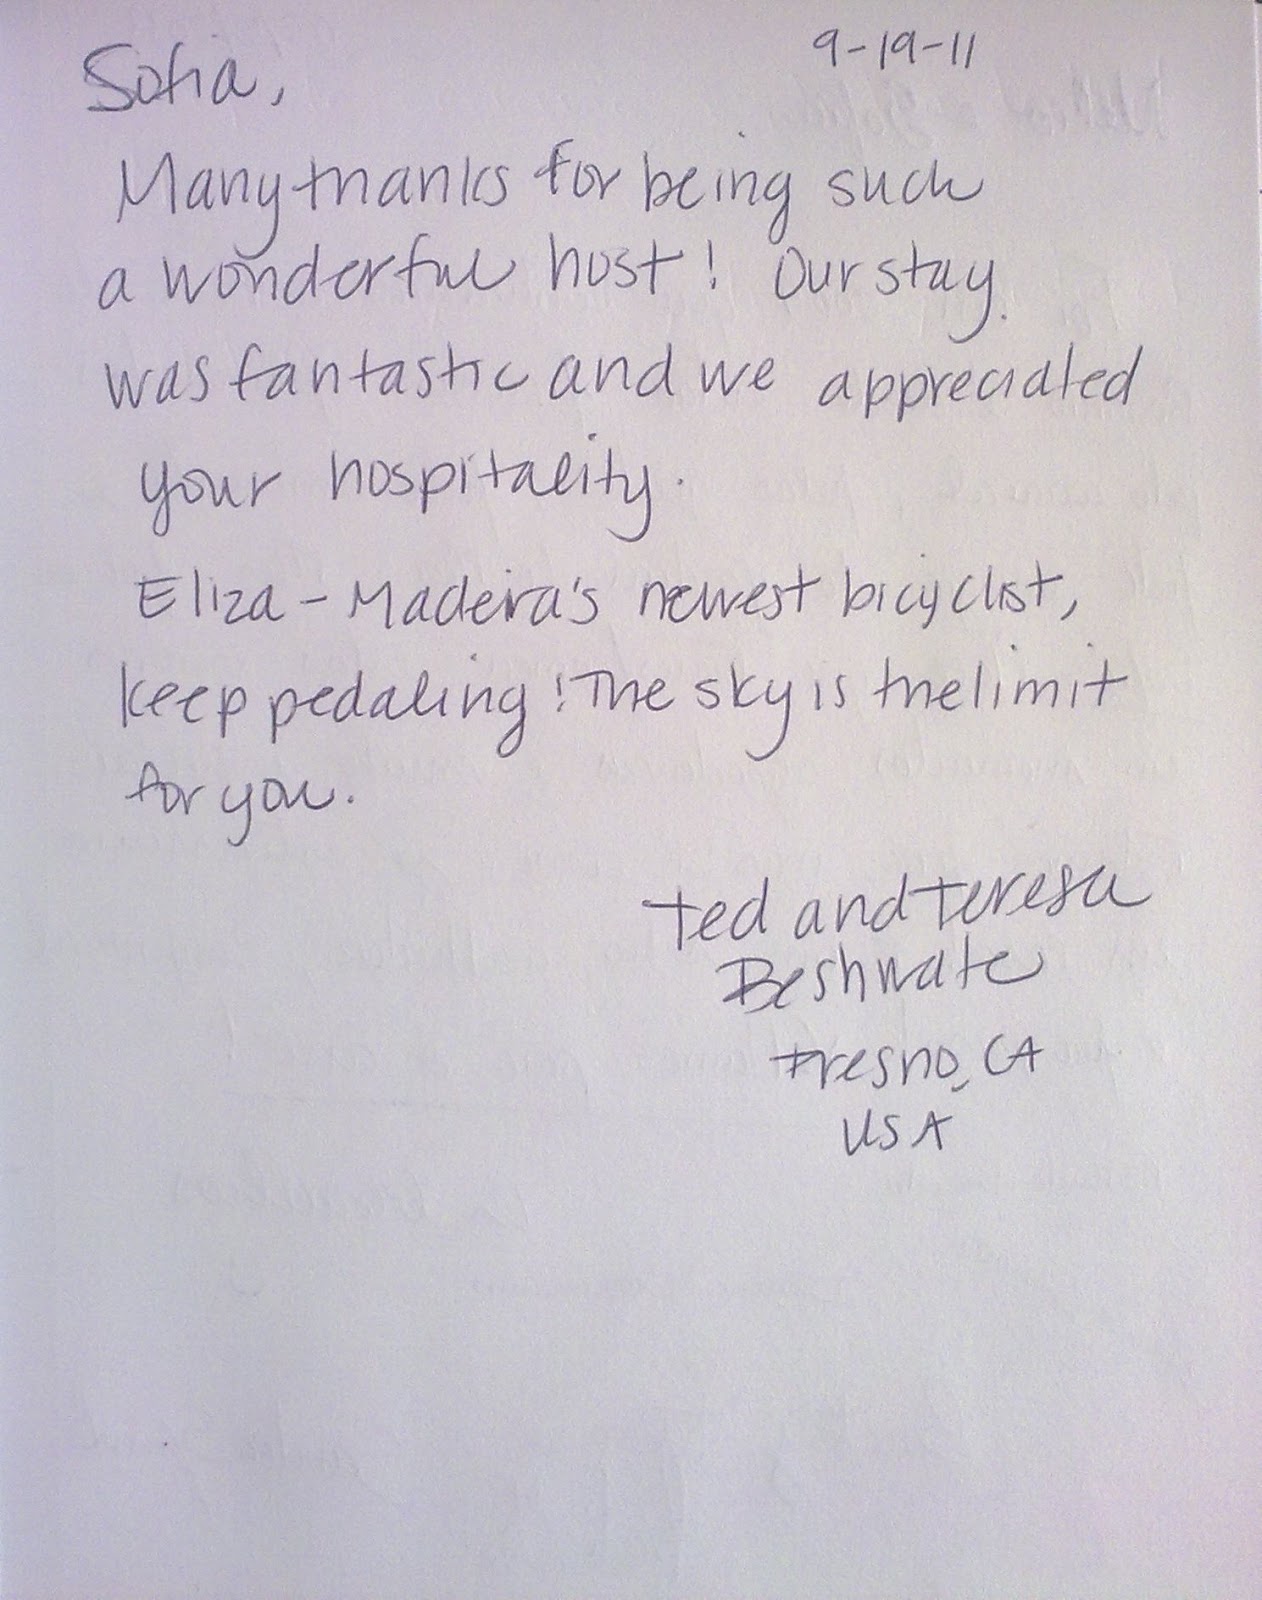 9-19-11
Sofia,
Many thanks for being such
a wonderful host! Our stay
was fantastic and we appreciated
your hospitality.
Eliza - Madeira's newest bicyclist,
keep pedaling! The sky is the limit
for you.
Ted and Teresa
Beshwate
Fresno, CA
USA